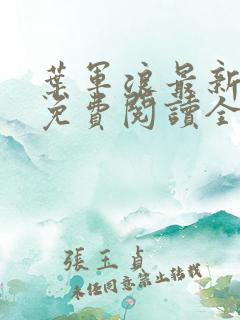 葉軍浪最新
免費閱讀全
張玉貞
未经同意禁止转载